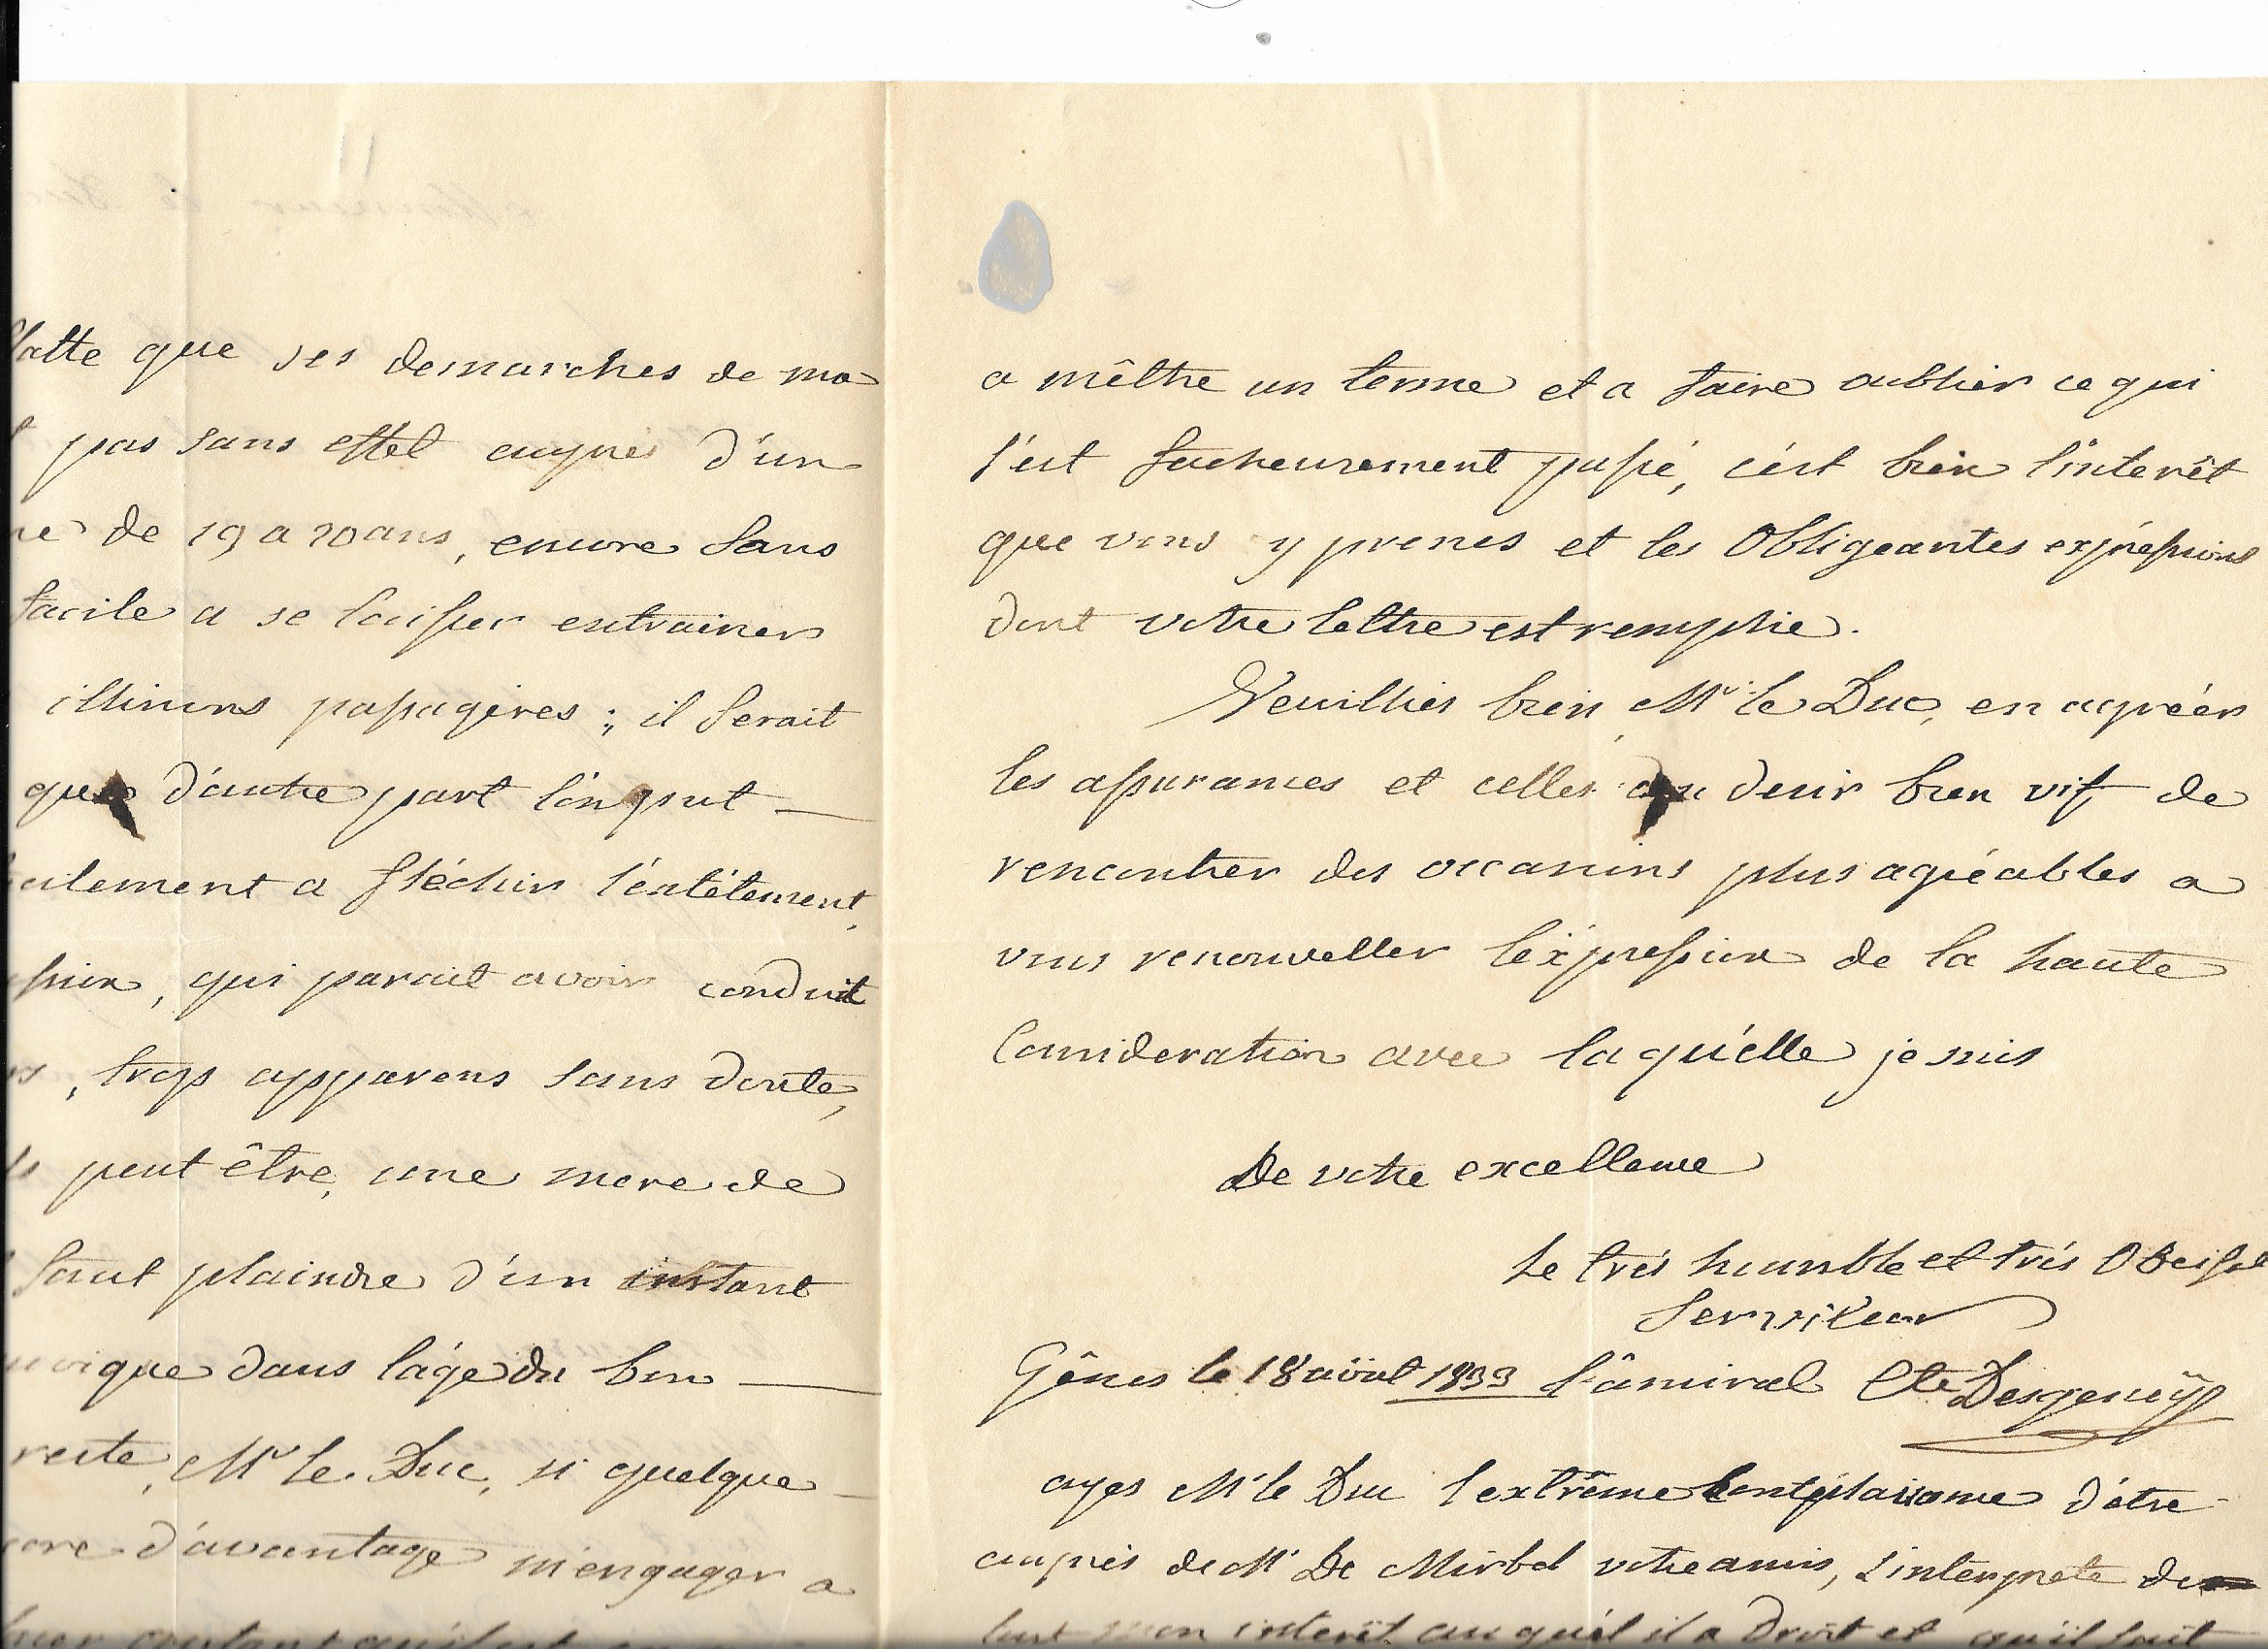 que ses demarches de ma
pas sans effet auprès d'un
de 19 a 20 ans, encore sans
facile a se laisser entrainer
illusions passagères ; il serait
que d'autre part l'on put
a fléchir l'entêtement,
, qui parait avoir conduit
, trop apparens sans doute,
peut être, une mere de
faut plaindre d'un instant
dans l'âge du bon
reste, Mr le Duc, si quelque
d'avantage m'engager a
a mêttre un terme et a faire oublier ce qui
s'est facheusement passé, c'ést bien l'interêt
que vous y prenes et les Obligeantes expréssions
dont votre lettre est remplie.
Veuilliés bien, Mr le Duc, en agréér
les assurances et celles du desir bien vif de
rencontrer des occasions plus agréables a
vous renouveller l'éxpression de la haute
Consideration avec laquélle je suis
De votre excellence
Le trés humble et trés Obeisst
Serviteur
Gênes le 18 août 1833 L'amiral Cte Desgeneÿs
ayes Mr le Duc l'extrême Complaisance d'étre
auprès de Mr De Mirbel votre ami, L'interprete de
tout mon interêt auquél il a Droit et qu'il soit